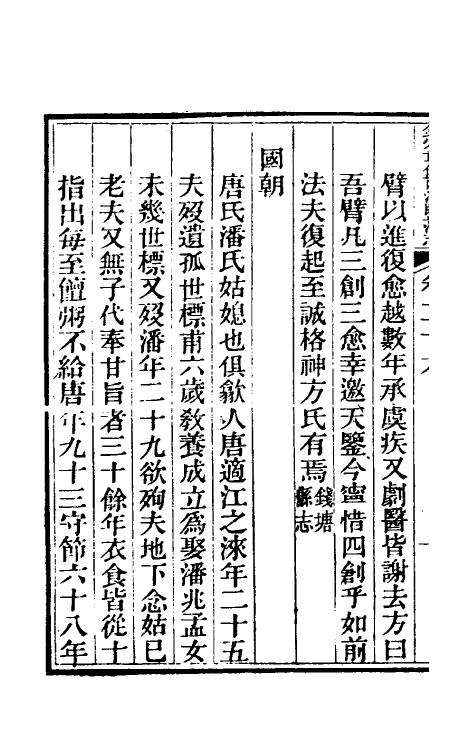 臂以進復愈越數年承虞疾又劇醫皆謝去方曰
吾臂凡三創三愈幸邀天鑒今寧惜四創乎如前
法夫復起至誠格神方氏有焉錢塘縣志
國朝
唐氏潘氏姑媳也俱歙人唐適江之淶年二十五
夫歿遺孤世標甫六歲敎養成立爲娶潘兆孟女
未幾世標又歿潘年二十九欲殉夫地下念姑已
老夫又無子代奉甘旨者三十餘年衣食皆從十
指出每至饘粥不給唐年九十三守節六十八年